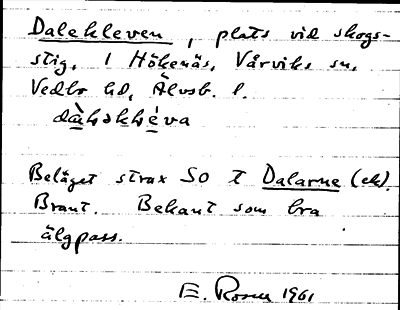 Dalekleven, plats vid skogs-
stig, i Hökenäs, Vårviks sn,
Vedbo hd, Älvsb. l.
dàləkléva
Beläget strax SO t Dalarne (ek).
Brant. Bekant som bra
älgpass.
E. Rosen 1961